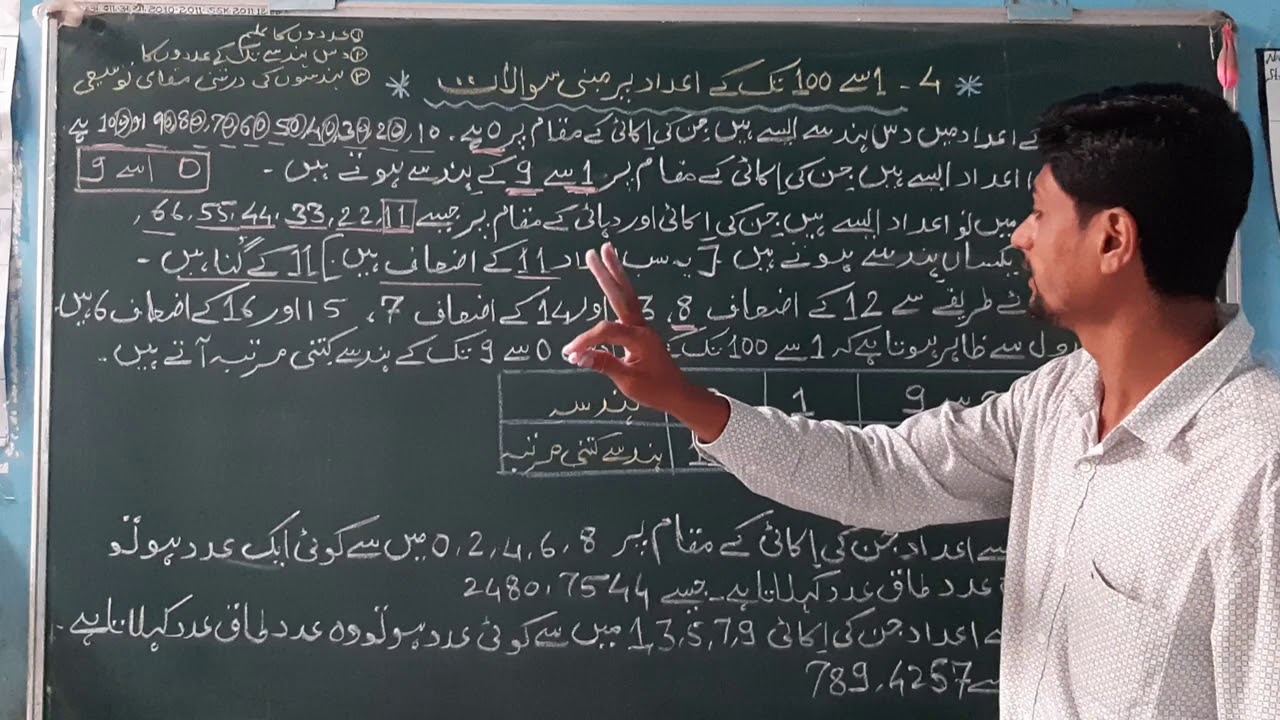 ۱ عددوں کا علم
۲ دس ہندسے تک کے عددوں کا
۳ ہندسوں کی درتنی مقامی توسیعی
* 4 - 1 سے 100 تک کے اعداد پر مبنی سوالات *
کے اعداد میں دس ہندسے ایسے ہیں جن کی اکائی کے مقام پر 0 ہے۔ 10، 20، 30، 40، 50، 60، 70، 80، 90 اور 100 ہے
اعداد ایسے ہیں جن کی اکائی کے مقام پر 1 سے 9 کے ہندسے ہوتے ہیں -
0 سے 9
میں نو اعداد ایسے ہیں جن کی اکائی اور دہائی کے مقام پر جیسے 11، 22، 33، 44، 55، 66،
یکساں ہندسے ہوتے ہیں [یہ سب 11 کے اضعاف ہیں] 11 کے گُنا ہیں -
طریقے سے 12 کے اضعاف 8، 3 اور 14 کے اضعاف 7، 15 اور 16 کے اضعاف 6 ہیں
سے ظاہر ہوتا ہے کہ 1 سے 100 تک کے 0 سے 9 تک کے ہندسے کتنی مرتبہ آتے ہیں۔
ہندسہ 1 سے 9
ہندسے کتنی مرتبہ 11
اعداد جن کی اکائی کے مقام پر 0، 2، 4، 6، 8 میں سے کوئی ایک عدد ہو تو
عدد طاق عدد کہلاتا ہے۔ جیسے 7544، 2480
اعداد جن کی اکائی 1,3,5,7,9 میں سے کوئی عدد ہو تو وہ عدد طاق عدد کہلاتا ہے۔
789، 4257